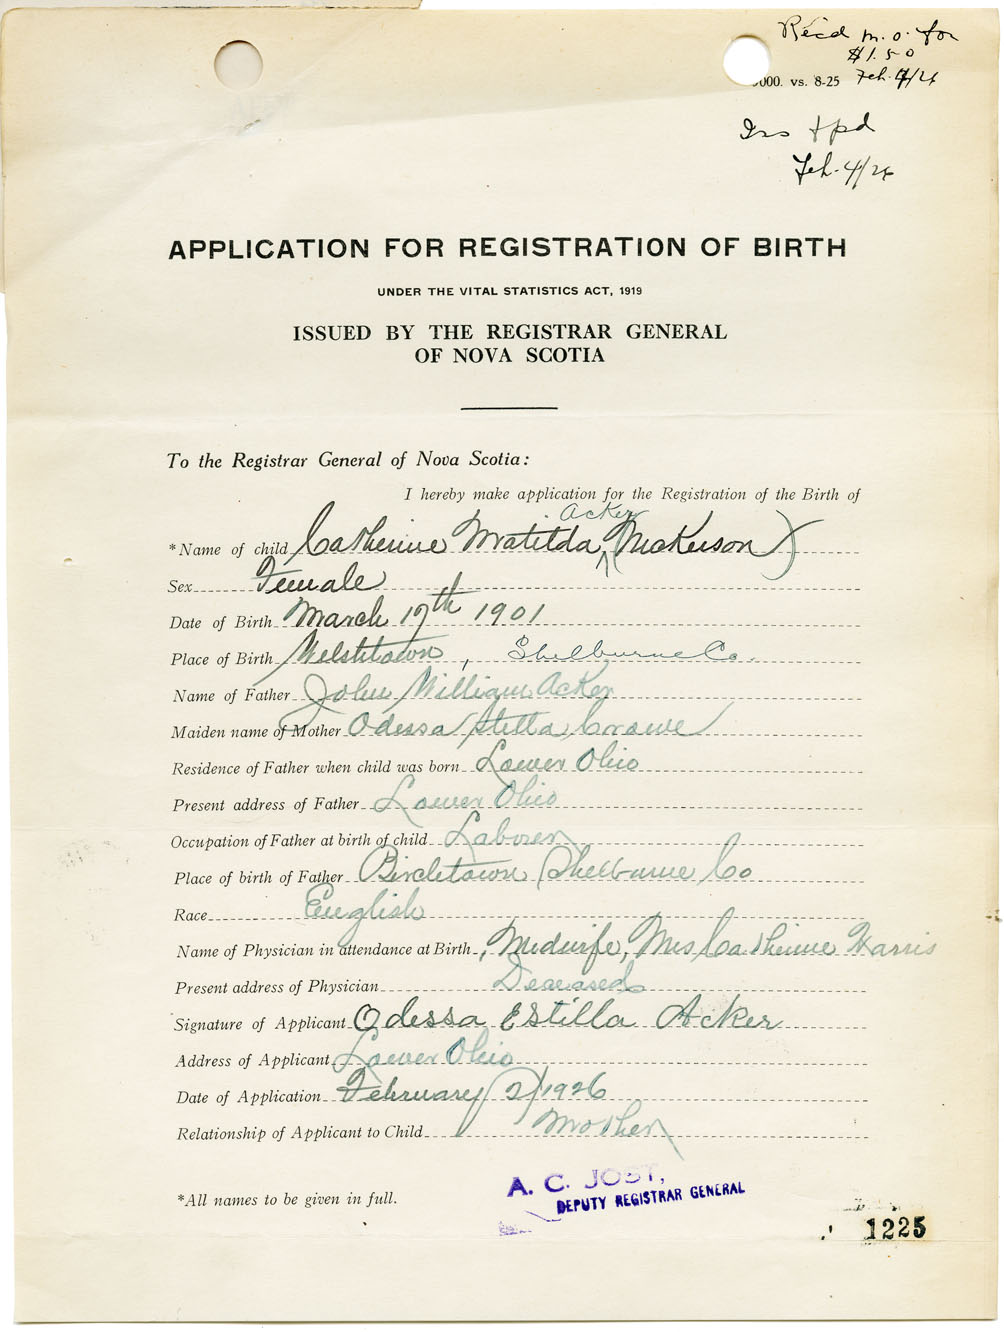 Rec'd m.o. for
$1.50
000. vs. 8-25 Feb. 4/26
Iss + pd
Feb. 4/26
APPLICATION FOR REGISTRATION OF BIRTH
UNDER THE VITAL STATISTICS ACT, 1919
ISSUED BY THE REGISTRAR GENERAL
OF NOVA SCOTIA
To the Registrar General of Nova Scotia:
I hereby make application for the Registration of the Birth of
Acker
*Name of child Catherine Matilda (Nickerson)
Sex Female
Date of Birth March 17th 1901
Place of Birth Welshtown, Shelburne Co.
Name of Father John William Acker
Maiden name of Mother Odessa Stella Crowe
Residence of Father when child was born Lower Ohio
Present address of Father Lower Ohio
Occupation of Father at birth of child Laborer
Place of birth of Father Birchtown Shelburne Co
Race English
Name of Physician in attendance at Birth, Midwife, Mrs Catherine Harris
Present address of Physician Deceased
Signature of Applicant Odessa Estilla Acker
Address of Applicant Lower Ohio
Date of Application February 2/1926
Relationship of Applicant to Child Mother
*All names to be given in full.
A. C. JOST,
DEPUTY REGISTRAR GENERAL
1225